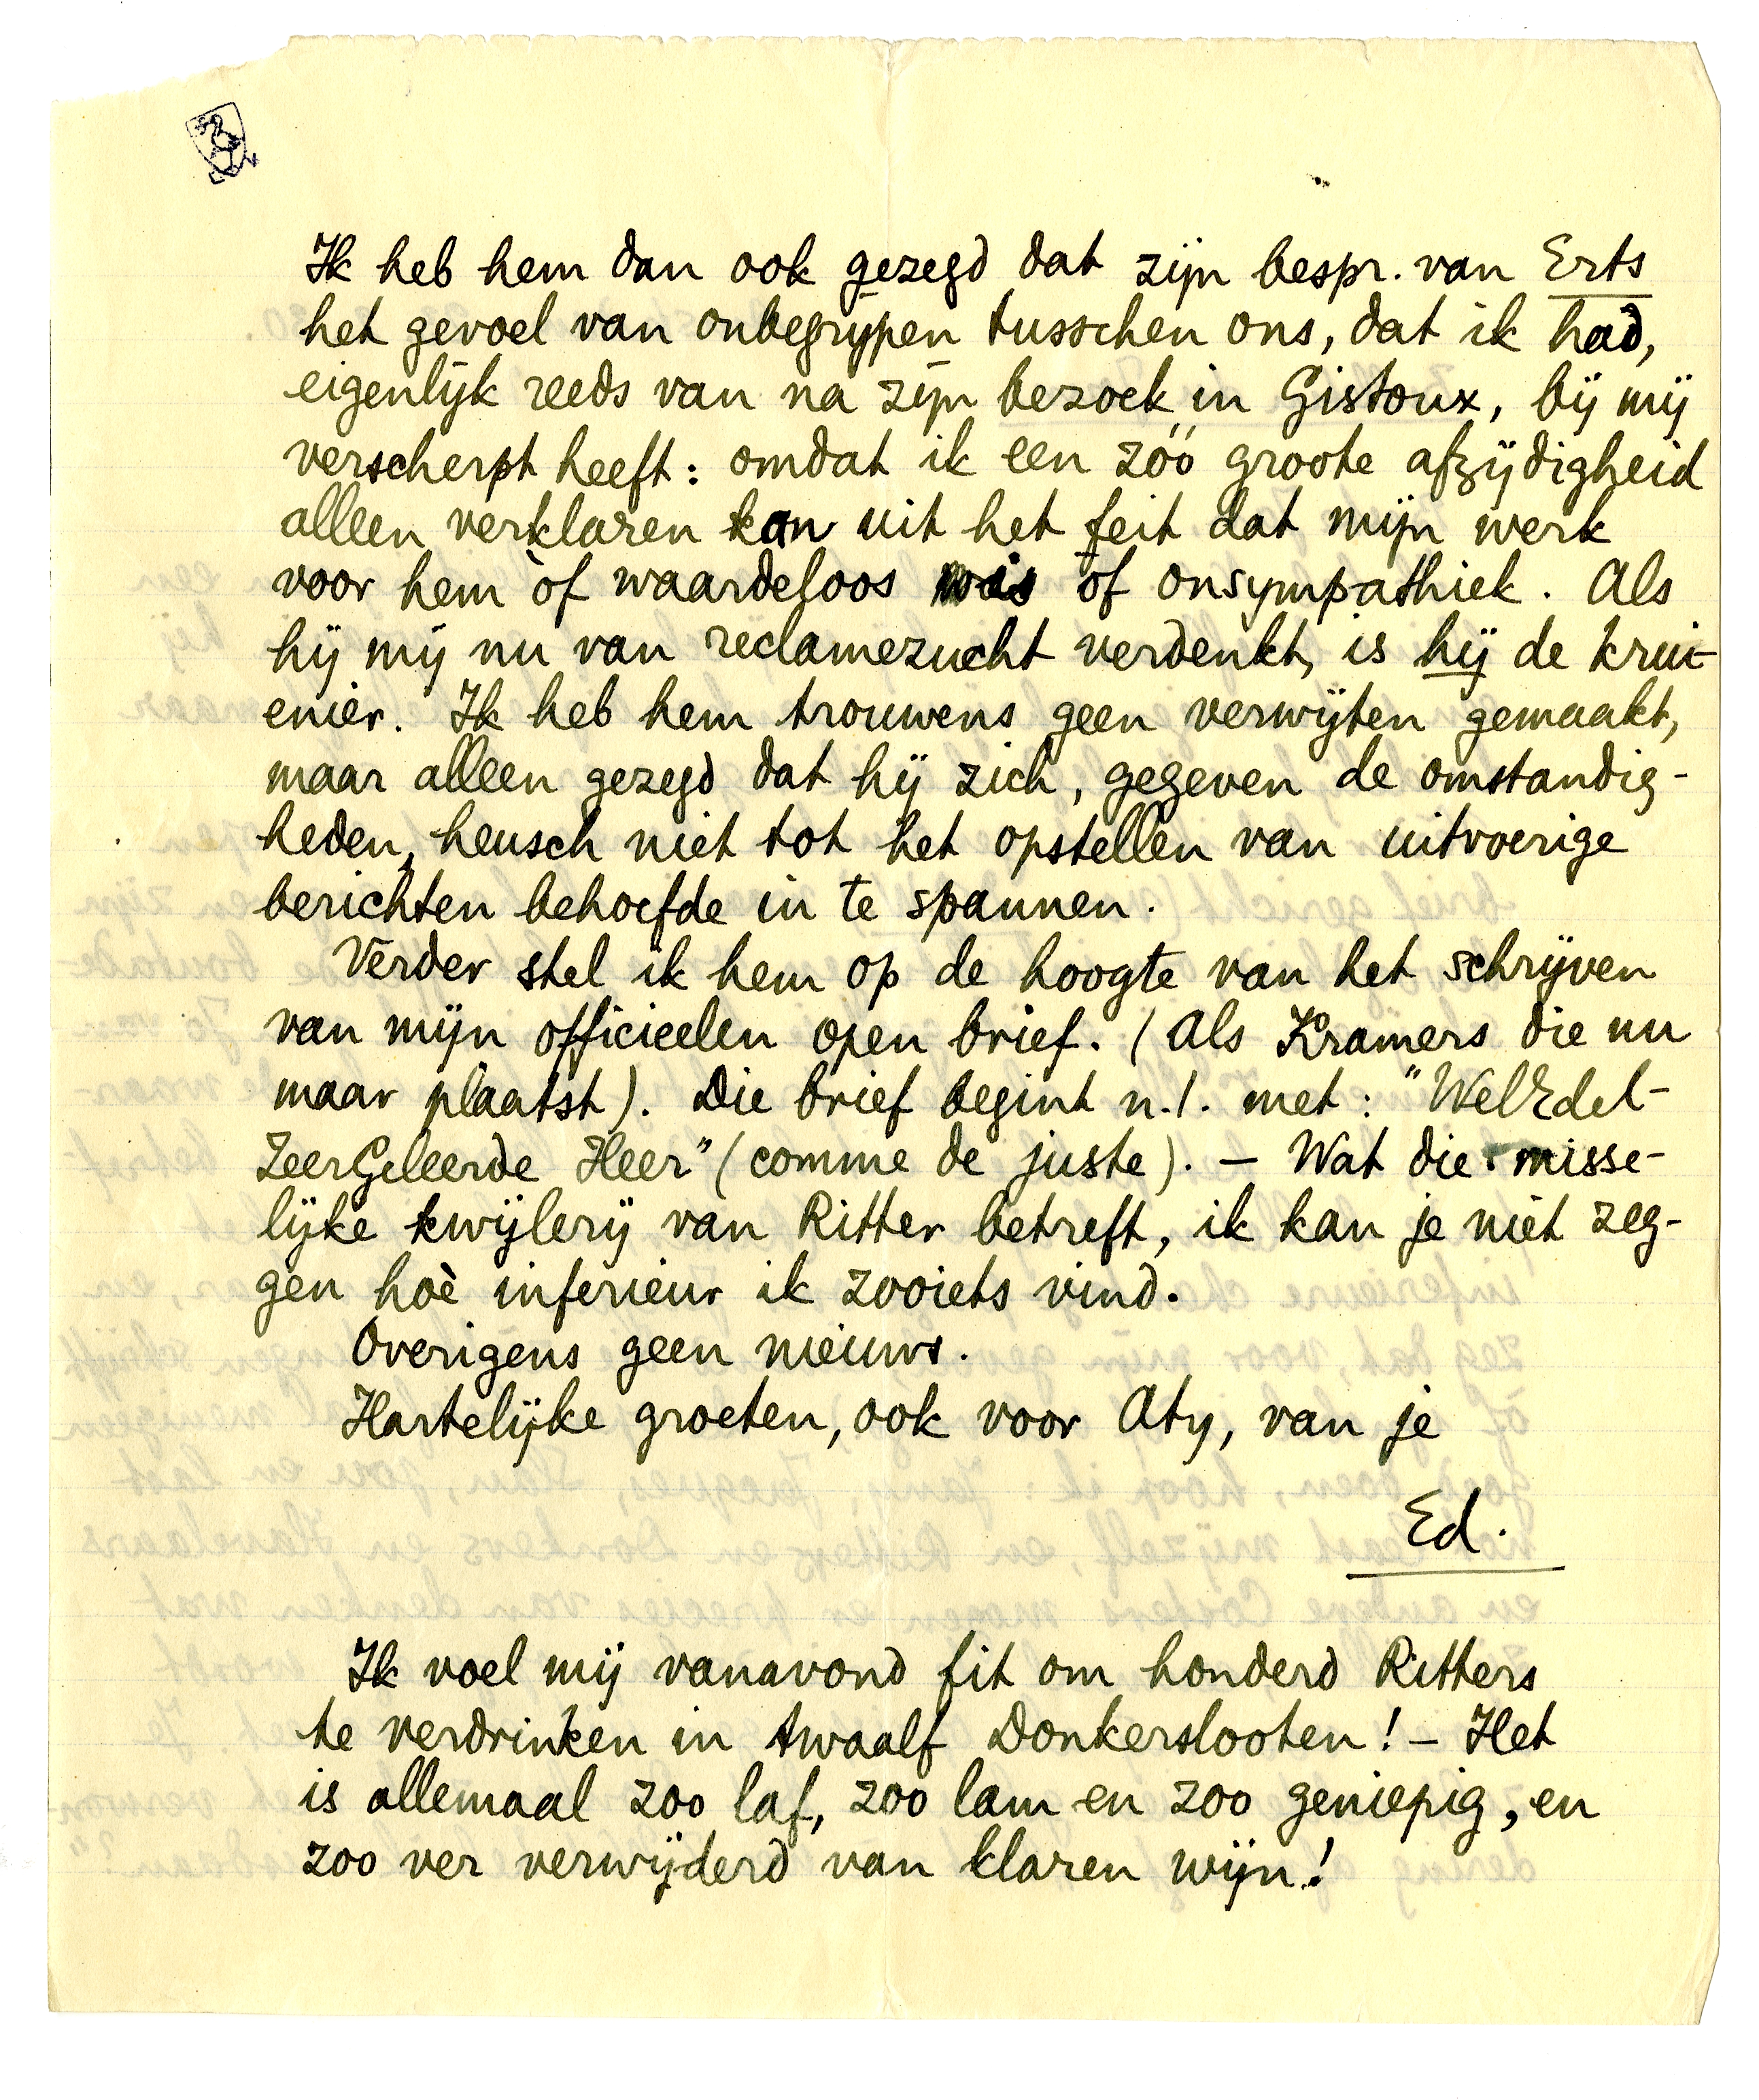 Ik heb hem dan ook gezegd dat zijn bespr. van Erts
het gevoel van onbegrijpen tusschen ons, dat ik had,
eigenlijk reeds van na zijn bezoek in Gistoux, bij mij
verscherpt heeft: omdat ik een zóó groote afzijdigheid
alleen verklaren kan uit het feit dat mijn werk
voor hem òf waardeloos is òf onsympathiek. Als
hij mij nu van reclamezucht verdenkt, is hij de krui-
enier. Ik heb hem trouwens geen verwijten gemaakt,
maar alleen gezegd dat hij zich, gegeven de omstandig-
heden, heusch niet tot het opstellen van uitvoerige
berichten behoefde in te spannen.
Verder stel ik hem op de hoogte van het schrijven
van mijn officieelen open brief. (Als Kramers die nu
maar plaatst). Die brief begint n.l. met: "WelEdel-
ZeerGeleerde Heer" (comme de juste). – Wat die misse-
lijke kwijlerij van Ritter betreft, ik kan je niet zeg-
gen hoè inferieur ik zooiets vind.
Overigens geen nieuws.
Hartelijke groeten, ook voor Aty, van je
Ed.
Ik voel mij vanavond fit om honderd Ritters
te verdrinken in twaalf Donkerslooten! – Het
is allemaal zoo laf, zoo lam en zoo geniepig, en
zoo ver verwijderd van klaren wijn!